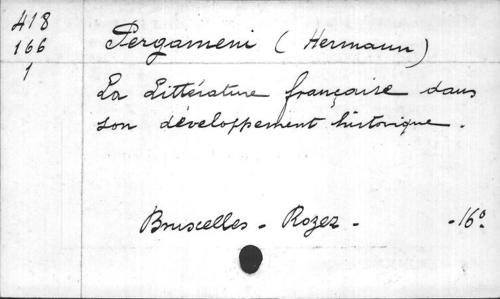 418
166
1
Pergameni (Hermann)
La Littérature française dans
son développement historique.
Bruxelles - Rozez - -16º